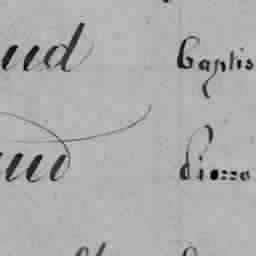 ud Baptis
aud Pierre